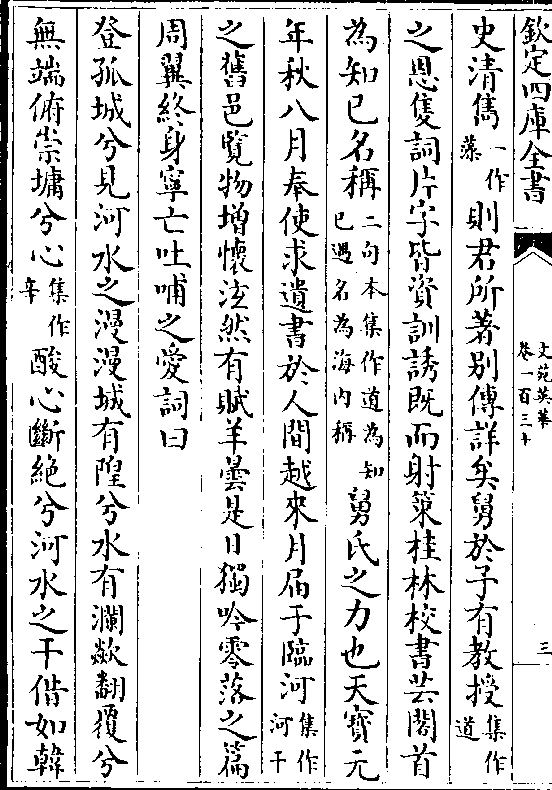 欽定四庫全書
文苑英華
卷一百三十
三
史清雋一作藻則君所著别傳詳矣舅於子有教授集作道
之恩隻詞片字皆資訓誘既而射策桂林校書芸閣首
為知已名稱二句本集作道為知已遇名為海内稱舅氏之力也天寳元
年秋八月奉使求遺書於人間越來月届于臨河集作河干
之舊邑覽物增懷泫然有賦羊曇是日獨吟零落之篇
周翼終身寧亡吐哺之愛詞曰
登孤城兮見河水之漫漫城有隍兮水有瀾歘翻覆兮
無端俯崇墉兮心集作辛酸心斷絶兮河水之干偕如韓